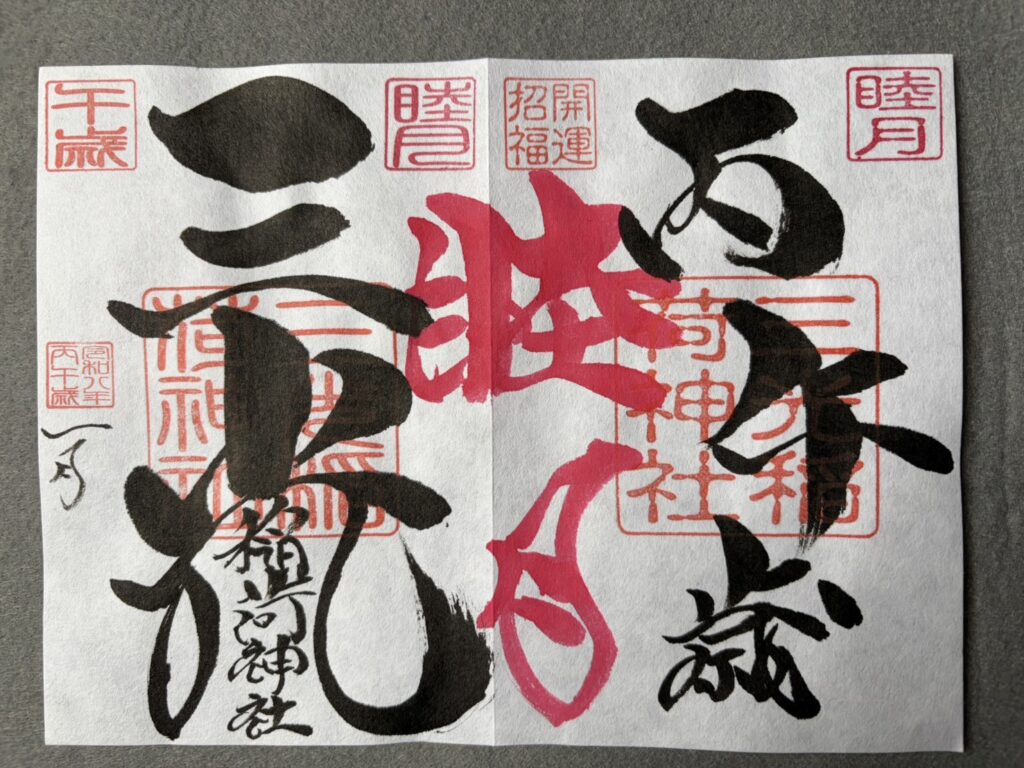 睦月
丙午歳
三光稲
荷神社
開運
招福
睦月
睦月
三光
稲荷神社
三光稲
荷神社
午歳
令和八年
丙午歳
一月